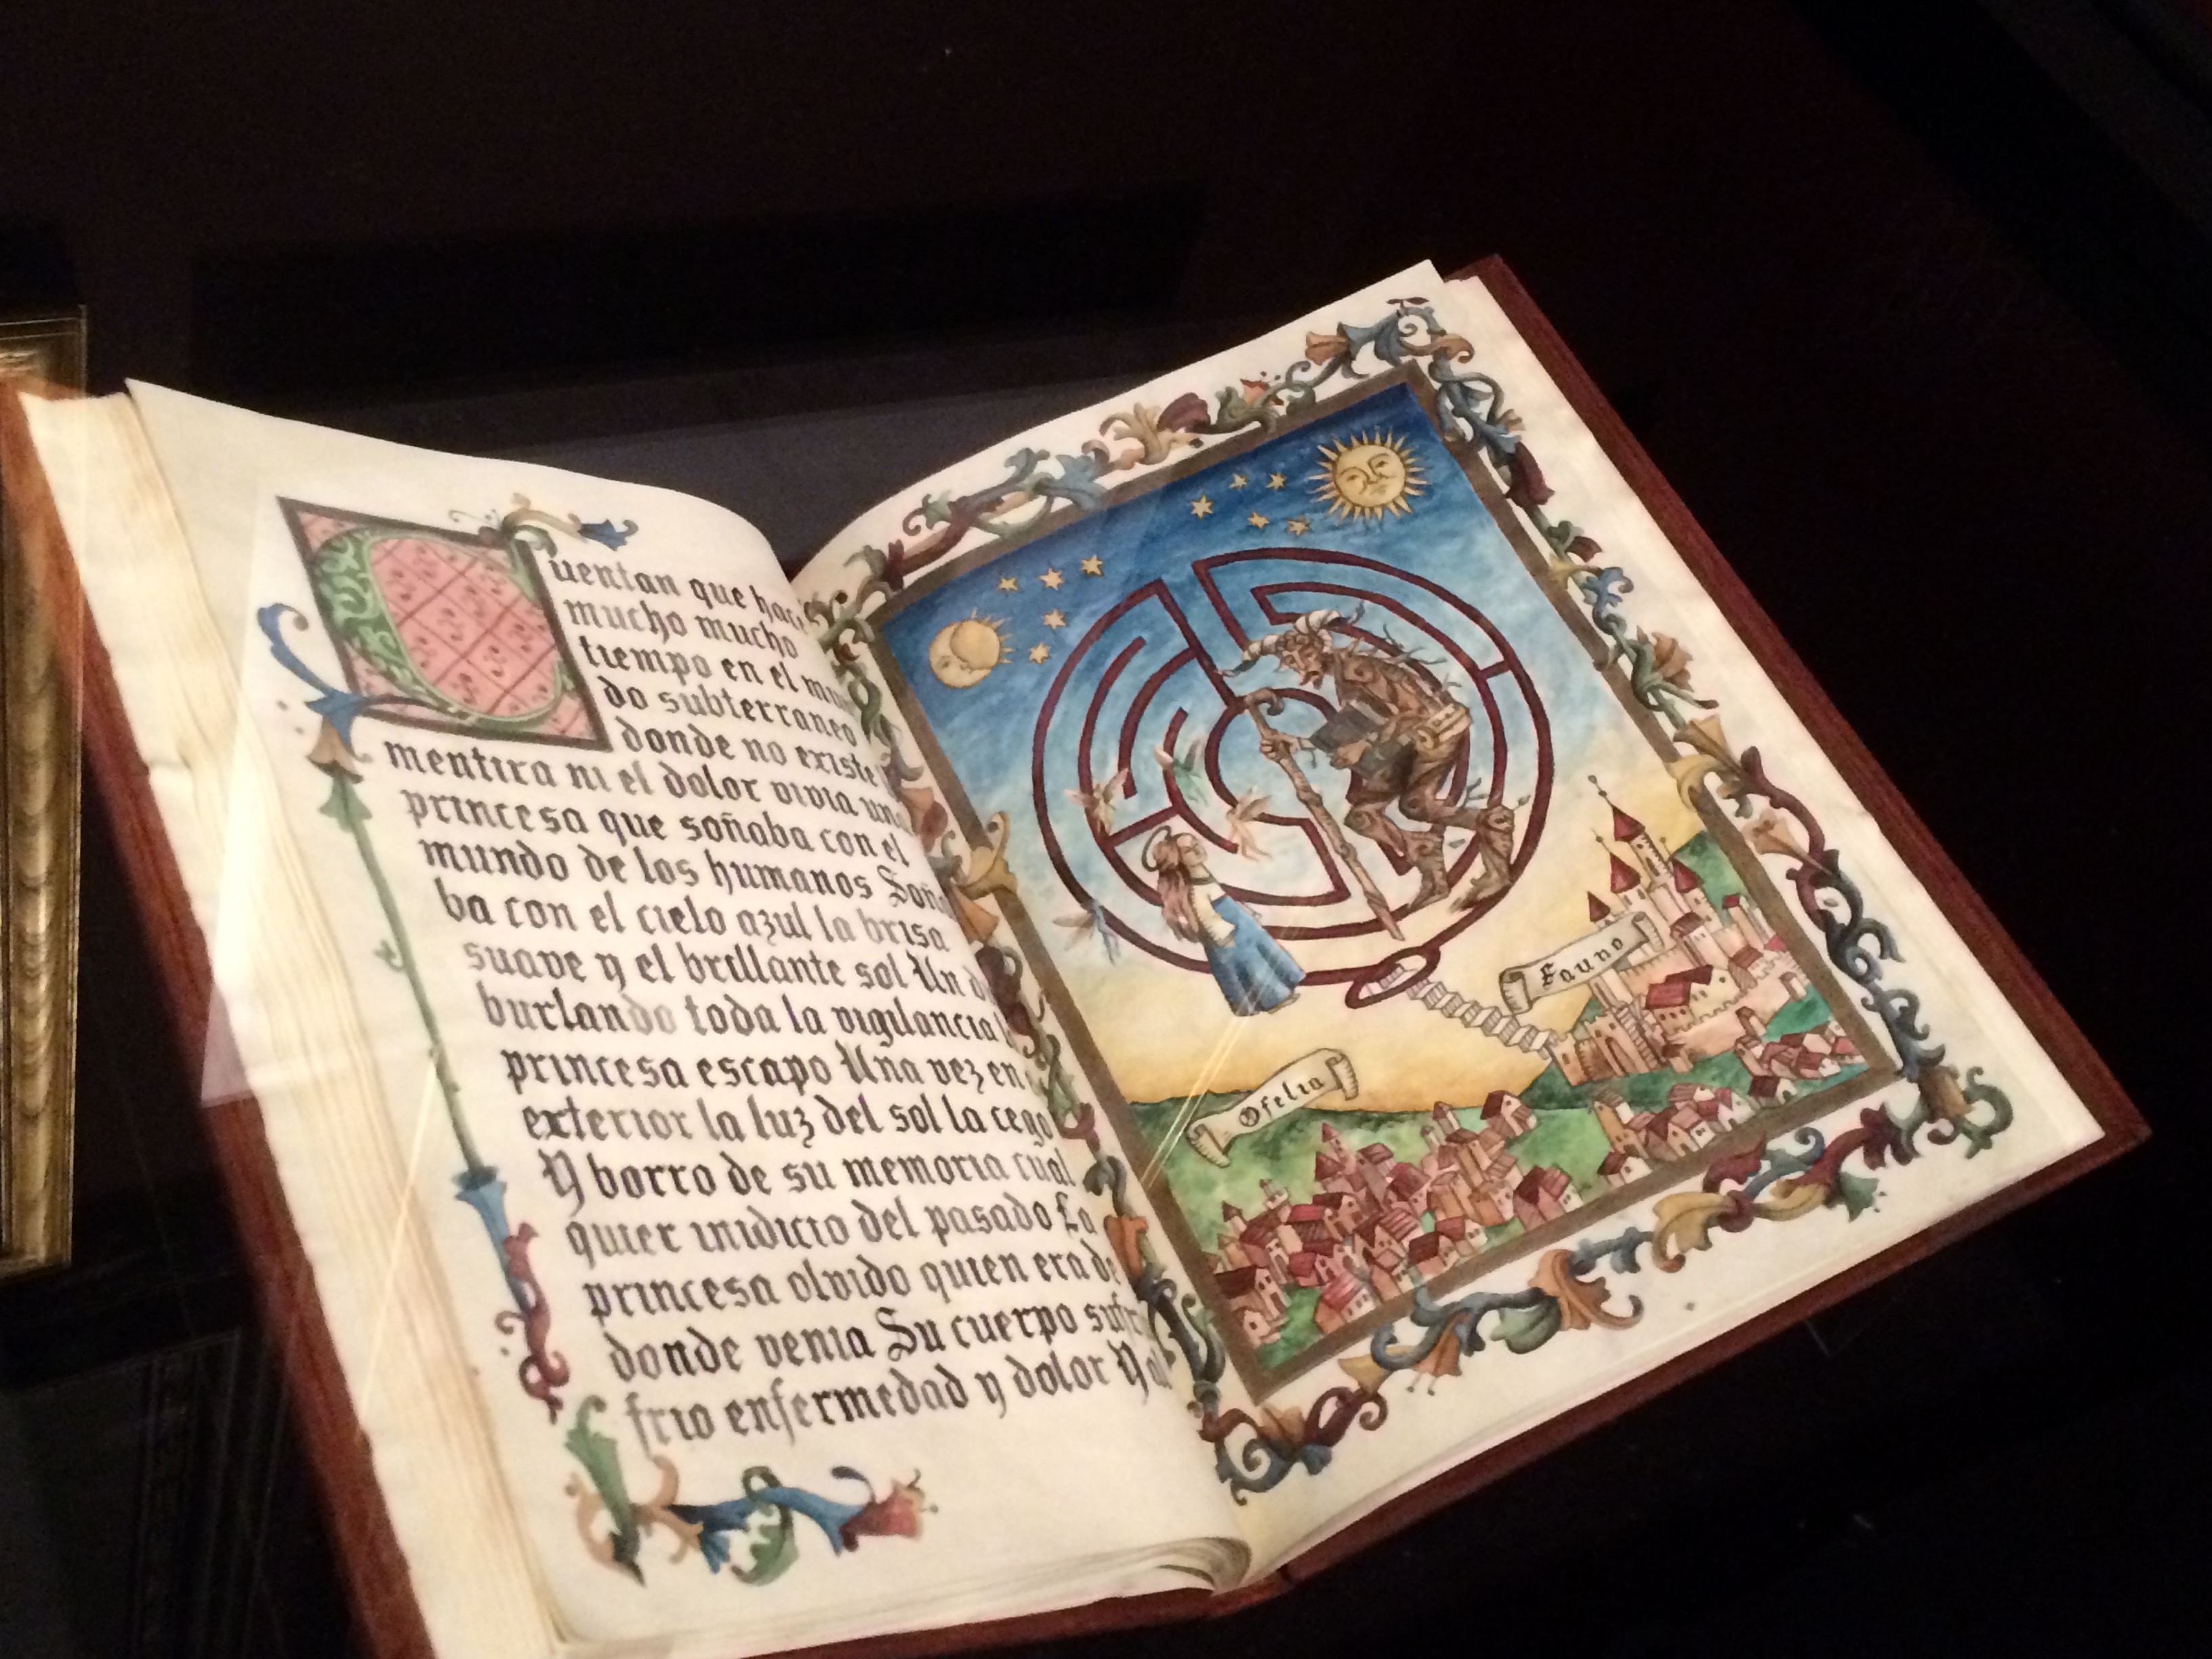 Cuentan que hace
mucho mucho
tiempo en el mun
do subterraneo
donde no existe
mentira ni el dolor vivia una
princesa que soñaba con el
mundo de los humanos Soña
ba con el cielo azul la brisa
suave y el brillante sol Un
burlando toda la vigilancia
princesa escapo Una vez en
exterior la luz del sol la cego
Y borro de su memoria cual
quier inidicio del pasado La
princesa olvido quien era de
donde venia Su cuerpo
frio enfermedad y dolor Y al
Fauno
Ofelia